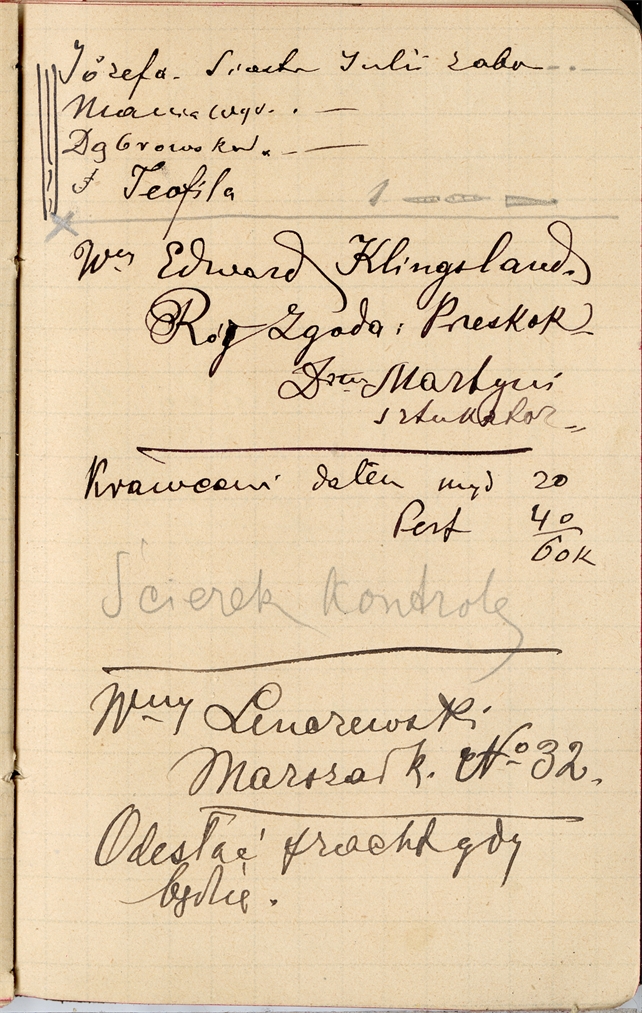 Józefa. Siostra Julii zabo
Mania wyd. . —
Dąbrowska. . —
Teofila
1
Wny Edward Klingsland.
Róg Zgoda i Przeskok
Dom Martyni
sztukator
Krawcowi dałem myd 20
Perf 40
60 K
Ścierek Kontrolę
Wmy Lenczewski
Marszałk. No 32.
Odesłać fracht gdy
będzie.